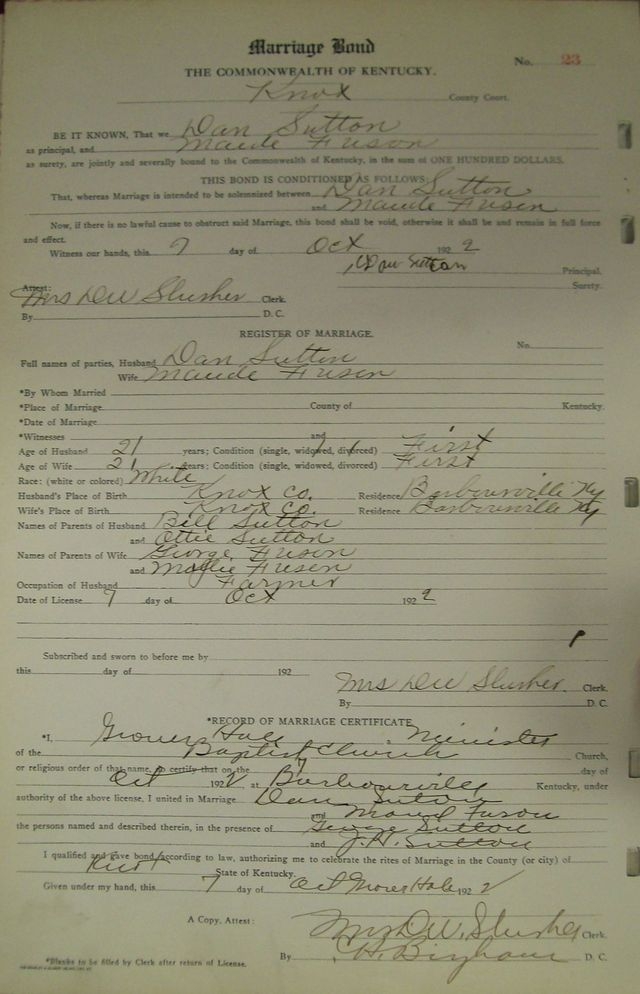 Marriage Bond
No. 23
THE COMMONWEALTH OF KENTUCKY.
Knox County Court.
BE IT KNOWN, That we Dan Sutton
as principal, and Maude Frison
as surety, are jointly and severally bound to the Commonwealth of Kentucky, in the sum of ONE HUNDRED DOLLARS.
THIS BOND IS CONDITIONED AS FOLLOWS:
That, whereas Marriage is intended to be solemnized between Dan Sutton
and Maude Frison
Now, if there is no lawful cause to obstruct said Marriage, this bond shall be void, otherwise it shall be and remain in full force
and effect.
Witness our hands, this 7 day of Oct 1922
Sutton Principal.
Attest: Surety.
Mrs DW Slusher Clerk.
By D. C.
REGISTER OF MARRIAGE.
No.
Full names of parties, Husband Dan Sutton
Wife Maude Frison
*By Whom Married
*Place of Marriage County of Kentucky.
*Date of Marriage
*Witnesses and
Age of Husband 21 years; Condition (single, widowed, divorced) First
Age of Wife 21 years: Condition (single, widowed, divorced) First
Race: (white or colored) White
Husband's Place of Birth Knox Co. Residence Barbourville Ky
Wife's Place of Birth Knox Co. Residence Barbourville Ky
Names of Parents of Husband Bill Sutton
and Ottie Sutton
Names of Parents of Wife George Frison
and Mollie Frison
Occupation of Husband Farmer
Date of License 7 day of Oct 1922
Subscribed and sworn to before me by
this day of 192
Mrs DW Slusher. Clerk.
By D. C.
*RECORD OF MARRIAGE CERTIFICATE
*I, Grover Hale Minister
of the Baptist Church Church,
or religious order of that name, do certify that on the 7 day of
Oct 1922, at Barbourville Kentucky, under
authority of the above license, I united in Marriage Dan Suton
and Maud Fuson
the persons named and described therein, in the presence of George Sutton
and J.H. Sutton
I qualified and gave bond according to law, authorizing me to celebrate the rites of Marriage in the County (or city) of
State of Kentucky.
Given under my hand, this 7 day of Oct Grover Hale 1922
A Copy, Attest: Mrs DW. Slusher Clerk.
*Blanks to be filled by Clerk after return of License. By C.H. Bingham D. C.